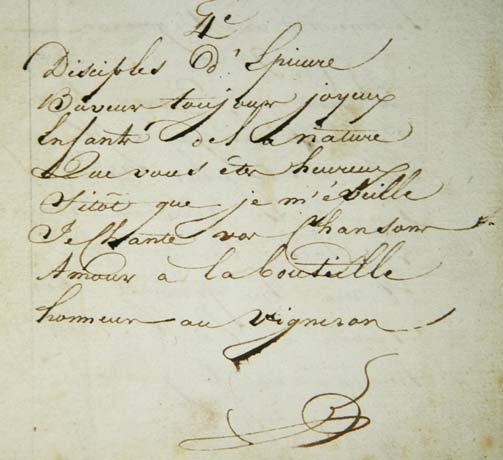 4e
Disciples d'Epicure
Buveur toujour joyeux
Enfants de la nature
Que vous ète heureux
Sitôt que je m'éveille
Je Chante vos Chansons
Amour a la bouteille
honneur au vigneron